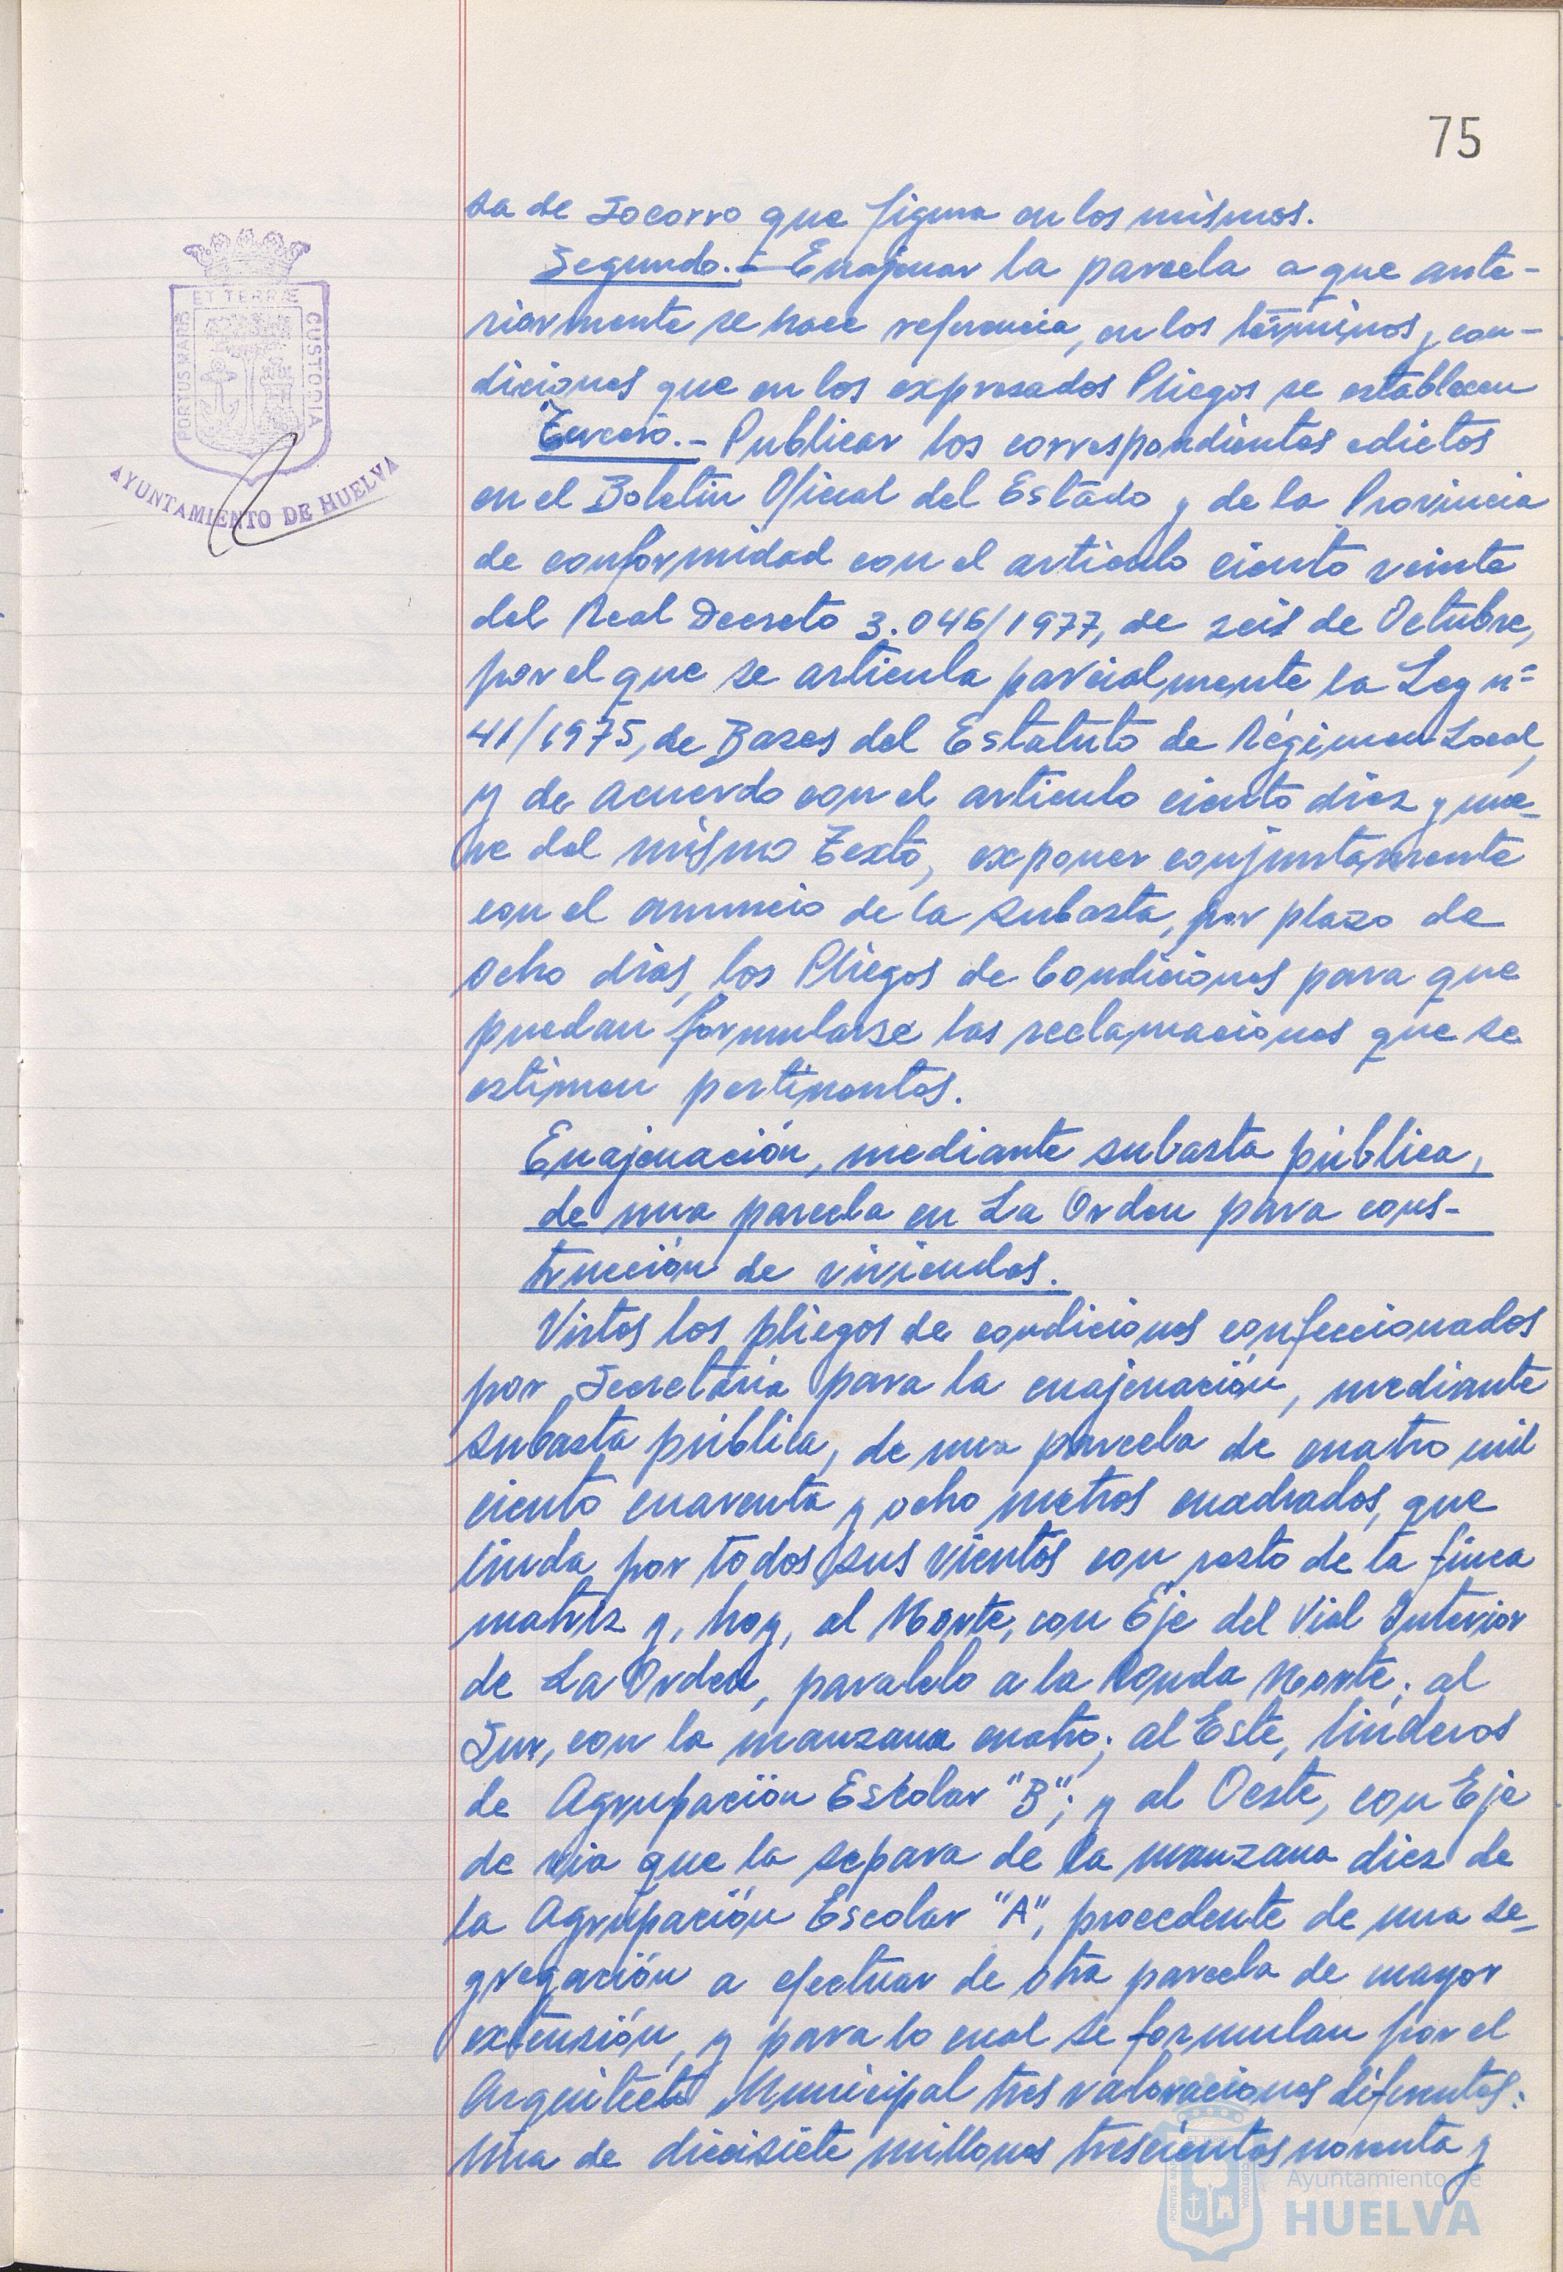 75
sa de Socorro que figura en los mismos.
Segundo.- Enajenar la parcela a que ante-
riormente se hace referencia, en los términos y con-
diciones que en los expresados Pliegos se establecen
Tercero.- Publicar los correspondientes edictos
en el Boletín Oficial del Estado y de la Provincia
de conformidad con el artículo ciento veinte
del Real Decreto 3.046/1977, de seis de Octubre,
por el que se articula parcialmente la Ley nº
41/1975, de Bases del Estatuto de Régimen Local,
y de acuerdo con el artículo ciento diez y nue-
ve del mismo Texto, exponer conjuntamente
con el anuncio de la subasta, por plazo de
ocho días, los Pliegos de Condiciones para que
puedan formularse las reclamaciones que se
estimen pertinentes.
Enajenación, mediante subasta pública,
de una parcela en La Orden para cons-
trucción de viviendas.
Vistos los pliegos de condiciones confeccionados
por Secretaría para la enajenación, mediante
subasta pública, de una parcela de cuatro mil
ciento cuarenta y ocho metros cuadrados, que
linda por todos sus vientos con resto de la finca
matriz y, hoy, al Norte, con Eje del Vial Interior
de La Orden, paralelo a la Ronda Norte; al
Sur, con la manzana cuatro; al Este, linderos
de Agrupación Escolar "B"; y al Oeste, con Eje
de vía que la separa de la manzana diez de
la Agrupación Escolar "A", procedente de una se-
gregación a efectuar de otra parcela de mayor
extensión, y para lo cual se formulan por el
Arquitecto Municipal tres valoraciones diferentes:
Una de diecisiete millones trescientos noventa y
PORTUS MARIS ET TERRÆ CUSTODIA
AYUNTAMIENTO DE HUELVA
Ayuntamiento de
HUELVA